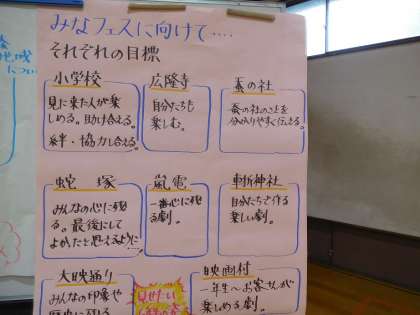 みなフェスに向けて‥‥
それぞれの目標
小学校
見に来た人が楽
しめる。助け合える。
絆・協力し合える。
広隆寺
自分たちも
楽しむ。
蚕の社
蚕の社のことを
分かりやすく伝える。
蛇塚
みんなの心に残
る。最後にして
よかったと思えるように
嵐電
一番心に残
る劇。
斬神社
自分たちで作る
楽しい劇。
大映通り
みんなの印象や
歴史に残る
見せたい
映画村
一年生〜お客さんが
楽しめる劇。